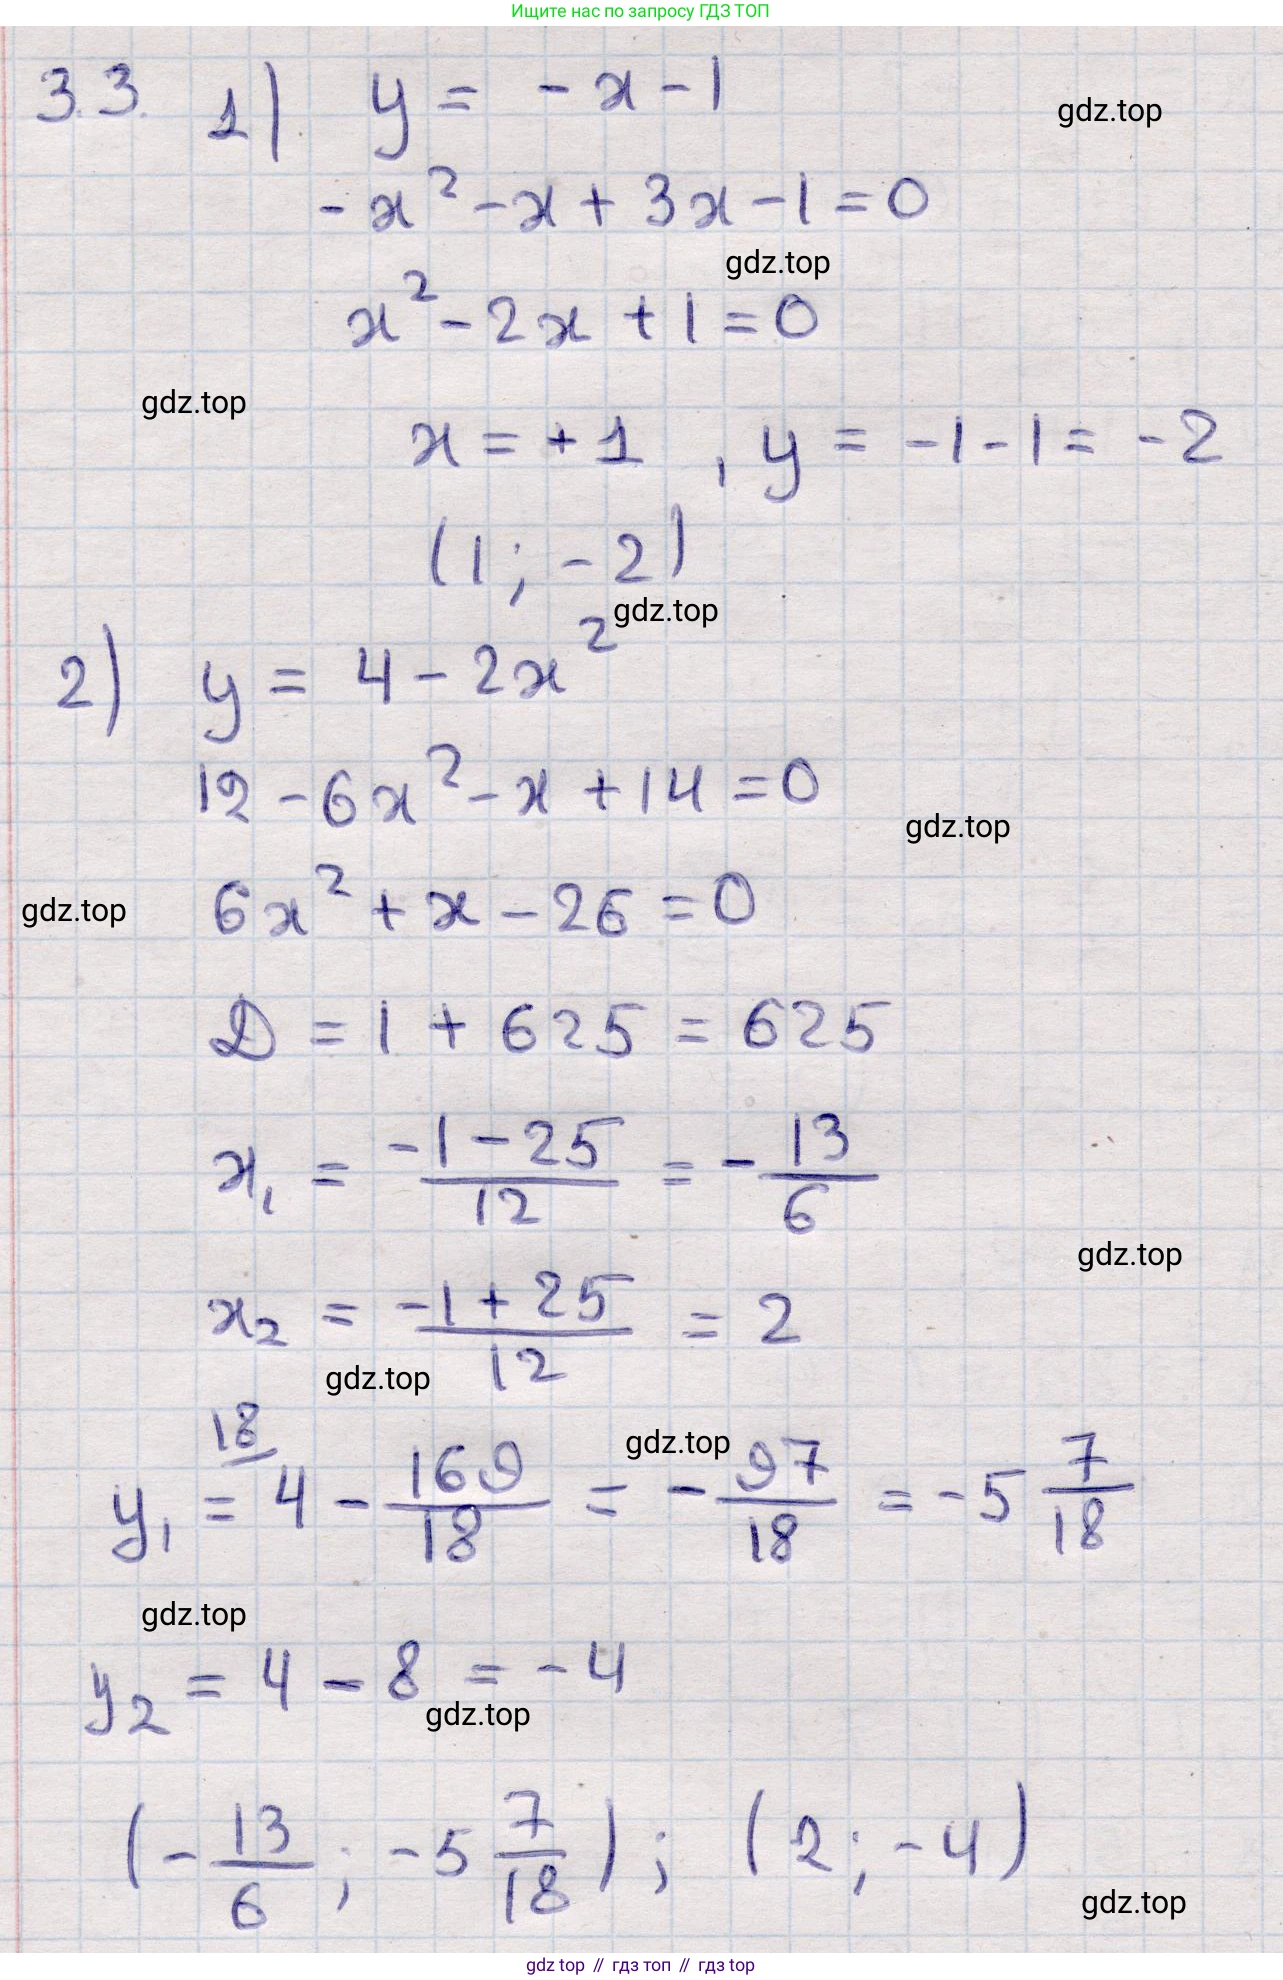 Ищите нас по запросу ГДЗ ТОП
3.3. 1) y = -x-1
gdz.top
-x²-x+3x-1=0
gdz.top
x²-2x+1=0
gdz.top
x=+1, y=-1-1=-2
(1; -2)
gdz.top
2) y = 4-2x²
12-6x²-x+14=0
gdz.top
6x²+x-26=0
gdz.top
D = 1+625=625
x₁ = (-1-25)/12 = -13/6
gdz.top
x₂ = (-1+25)/12 = 2
gdz.top
18/
gdz.top
y₁ = 4 - 169/18 = -97/18 = -5 7/18
gdz.top
y₂ = 4-8=-4
gdz.top
(-13/6; -5 7/18); (2; -4)
gdz.top
gdz top // гдз топ // gdz top